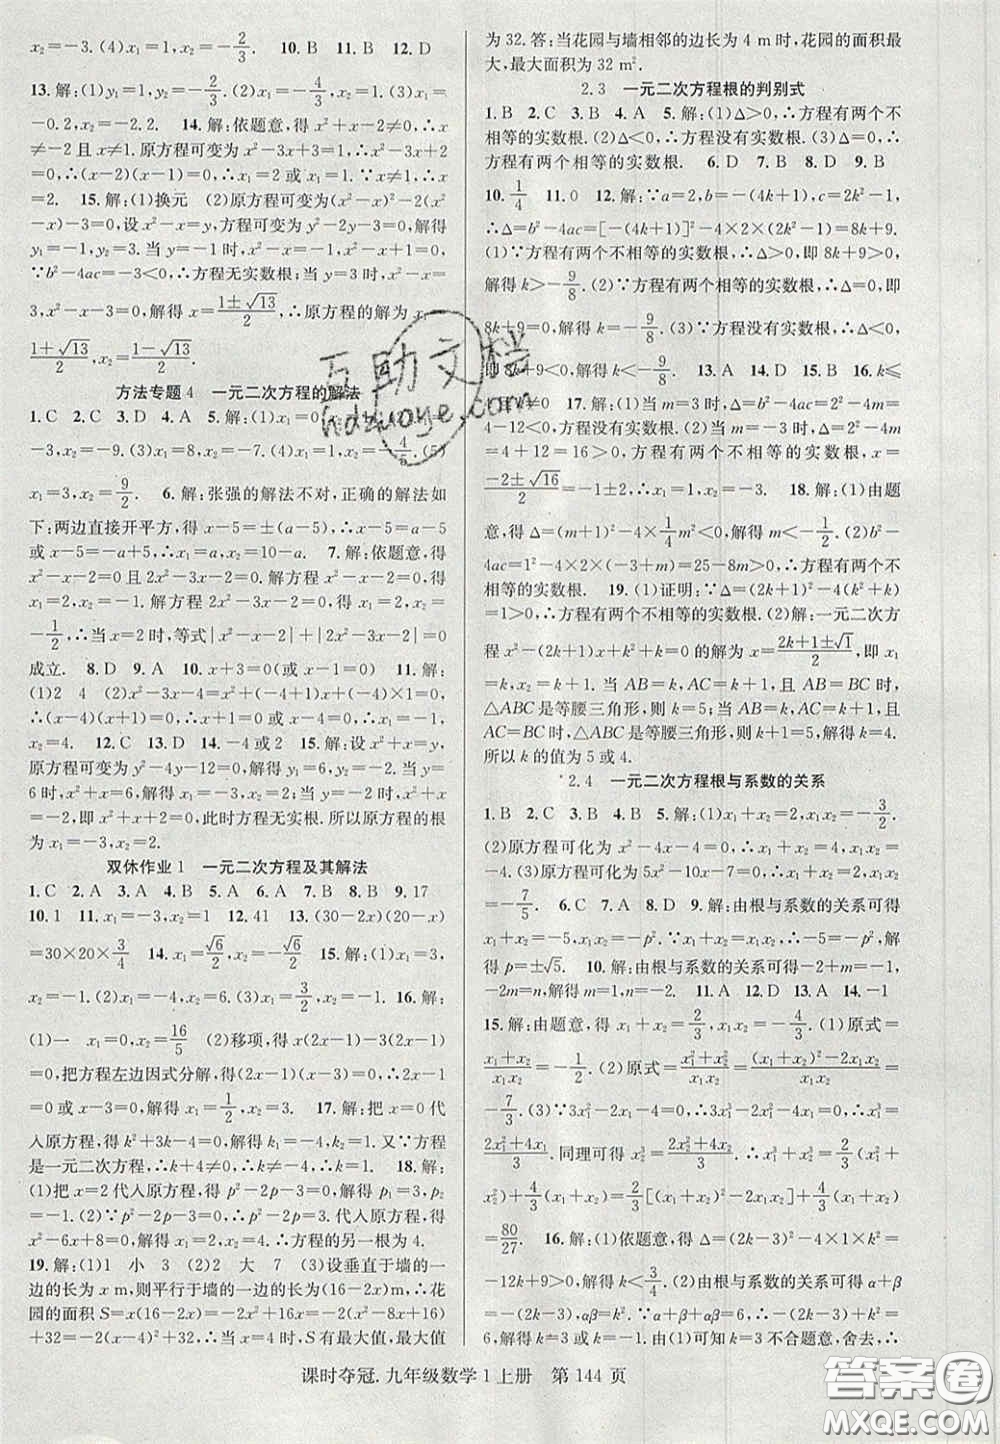 x₂=-3.(4)x₁=1,x₂=-2/3. 10.B 11.B 12.D
13.解:(1)y₁=1,y₂=-2/3.(2)x₁=-4/3,x₂=1.(3)x₁=
-0.2,x₂=-2.2. 14.解:依题意,得x²+x-2≠0,∴x
≠-2且x≠1.原方程可变为x²-3x+3=1,x²-3x+2
=0,(x-2)(x-1)=0,解得x=2或x=1.又∵x≠1,∴x=
2. 15.解:(1)换元 (2)原方程可变为(x²-x)²-2(x²
-x)-3=0,设x²-x=y,原方程可变为y²-2y-3=0,解得
y₁=-1,y₂=3.当y=-1时,x²-x=-1,x²-x+1=0,
∵b²-4ac=-3<0,∴方程无实数根;当y=3时,x²-x=
3,x²-x-3=0,解得x=(1±√13)/2,∴原方程的解为x₁=
(1+√13)/2,x₂=(1-√13)/2.
方法专题4 一元二次方程的解法
1.C 2.C 3.D 4.A 5.解:(1)x₁=0,x₂
-3,x₂=-9.(3)x₁=8,x₂=-7.(4)x₁=-1,x₂=-1/4.(5)
x₁=3,x₂=9/2. 6.解:张强的解法不对,正确的解法如
下:两边直接开平方,得x-5=±(a-5),∴x-5=a-5
或x-5=-a+5,∴x₁=a,x₂=10-a. 7.解:依题意,得
x²-x-2=0且2x²-3x-2=0.解方程x²-x-2=0,得
x₁=-1,x₂=2.解方程2x²-3x-2=0,得x₁=2,x₂=
-1/2,∴当x=2时,等式|x²-x-2|+|2x²-3x-2|=0
成立. 8.D 9.A 10.x+3=0(或x-1=0) 11.解:
(1)2 4 (2)x²-3x-4=x²+(1-4)x+(-4)×1=0,
∴(x-4)(x+1)=0,∴x+1=0或x-4=0,∴x₁=-1,
x₂=4. 12.C 13.D 14.-4或2 15.解:设x²+x=y,
原方程可变为y²-4y-12=0,解得y₁=-2,y₂=6.当y=
6时,x²+x=6,x²+x-6=0,∴x₁=-3,x₂=2;当y=-2
时,x²+x=-2,x²+x+2=0,此时方程无实根.所以原方程的根
为x₁=-3,x₂=2.
双休作业1 一元二次方程及其解法
1.C 2.A 3.A 4.B 5.B 6.A 7.B 8.B 9.17
10.1 11.x₁=-3,x₂=1 12.41 13.(30-2x)(20-x)
=30×20×3/4 14.x₁=√6/2,x₂=-√6/2 15.解:(1)x₁
=x₂=-1.(2)x₁=10,x₂=-6.(3)x₁=3/2,x₂=-4. 16.解:
(1)一 x₁=0,x₂=16/5 (2)移项,得x(2x-1)-3(2x-1)
=0,把方程左边因式分解,得(2x-1)(x-3)=0,∴2x-1
=0或x-3=0,∴x₁=1/2,x₂=3. 17.解:把x=0代
入原方程,得k²+3k-4=0,解得k₁=-4,k₂=1.又∵方程
是一元二次方程,∴k+4≠0,∴k≠-4,∴k=1. 18.解:
(1)把x=2代入原方程,得p²-2p-3=0,解得p₁=3,p₂
=-1.(2)∵p²-2p-3=0,∴p²-2p=3.代入原方程,得
x²-6x+8=0,解得x₁=2,x₂=4.∴方程的另一根为4.
19.解:(1)1 小 3 (2)2 大 7 (3)设垂直于墙的一
边的长为x m,则平行于墙的一边的长为(16-2x)m,∴花
园的面积S=x(16-2x)=-2x²+16x=-2(x²-8x+16)
+32=-2(x-4)²+32,∴当x=4时,S有最大值,最大值
为32.答:当花园与墙相邻的边长为4 m时,花园的面积最
大,最大面积为32 m².
2.3 一元二次方程根的判别式
1.B 2.C 3.A 4.A 5.解:(1)Δ>0,∴方程有两个不
相等的实数根.(2)Δ<0,∴方程没有实数根.(3)Δ=0,
∴方程有两个相等的实数根. 6.D 7.B 8.D 9.B
10.1/4 11.0 12.解:∵a=2,b=-(4k+1),c=2k²-1,
∴Δ=b²-4ac=[-(4k+1)]²-4×2×(2k²-1)=8k+9.
(1)∵方程有两个不相等的实数根,∴Δ>0,即8k+9>0,
解得k>-9/8.(2)∵方程有两个相等的实数根,∴Δ=0,即
8k+9=0,解得k=-9/8.(3)∵方程没有实数根,∴Δ<0,
即8k+9<0,解得k<-9/8. 13.A 14.D 15.B 16.k≤
5且k≠0 17.解:(1)当m=3时,Δ=b²-4ac=2²-4×3=
4-12<0,∴原方程没有实数根.(2)当m=-3时,Δ=b²-4ac
=4+12=16>0,∴原方程有两个不相等的实数根,x=
(-2±√16)/2=-1±2,∴x₁=1,x₂=-3. 18.解:(1)由题
意,得Δ=(m+1)²-4×1/4m²<0,解得m<-1/2.(2)b²-
4ac=1²-4×2×(-3+m)=25-8m>0,∴方程有两个不
相等的实数根. 19.(1)证明:∵Δ=(2k+1)²-4(k²+k)
=1>0,∴方程有两个不相等的实数根.(2)解:一元二次方
程x²-(2k+1)x+k²+k=0的解为x=(2k+1±√1)/2,即x₁
=k,x₂=k+1.当AB=k,AC=k+1,且AB=BC时,
△ABC是等腰三角形,则k=5;当AB=k,AC=k+1,且
AC=BC时,△ABC是等腰三角形,则k+1=5,解得k=4.
所以k的值为5或4.
2.4 一元二次方程根与系数的关系
1.B 2.C 3.C 4.A 5.解:(1)x₁+x₂=2,x₁x₂=-3/2.
(2)原方程可化为x²-x-4=0,∴x₁+x₂=1,x₁x₂=
-4.(3)原方程可化为5x²-10x-7=0,∴x₁+x₂=2,x₁x₂
=-7/5. 6.C 7.A 8.D 9.解:由根与系数的关系可得
x₁+x₂=-5,x₁x₂=-p²,∵x₁x₂=x₁+x₂,∴-p²=-5,解
得p=±√5. 10.解:由根与系数的关系可得-2+m=-1,
-2m=n,解得m=1,n=-2. 11.A 12.D 13.A 14.-1
15.解:由题意,得x₁+x₂=2/3,x₁x₂=-4/3.(1)原式=
(x₁+x₂)/(x₁x₂)=-1/2.(2)原式=
-7/3.(3)∵3x₁²-2x₁-4=0,∴x₁²=
(2x₁+4)/3,∴x₁³=
(2x₁²+4x₁)/3.同理可得x₂³=(2x₂²+4x₂)/3,∴x₁³+x₂³=
80/27. 16.解:(1)依题意,得Δ=(2k-3)²-4k²=
-12k+9>0,解得k<3/4.(2)由根与系数的关系可得α+β
=-(2k-3),αβ=k²,∵α+β+αβ=6,∴-(2k-3)+k²=
6,解得k=3或k=-1.由(1)可知k=3不合题意,舍去,∴
课时夺冠.九年级数学1上册 第144页
互助文档
hdzuoye.com
答案圈
MXQE.COM